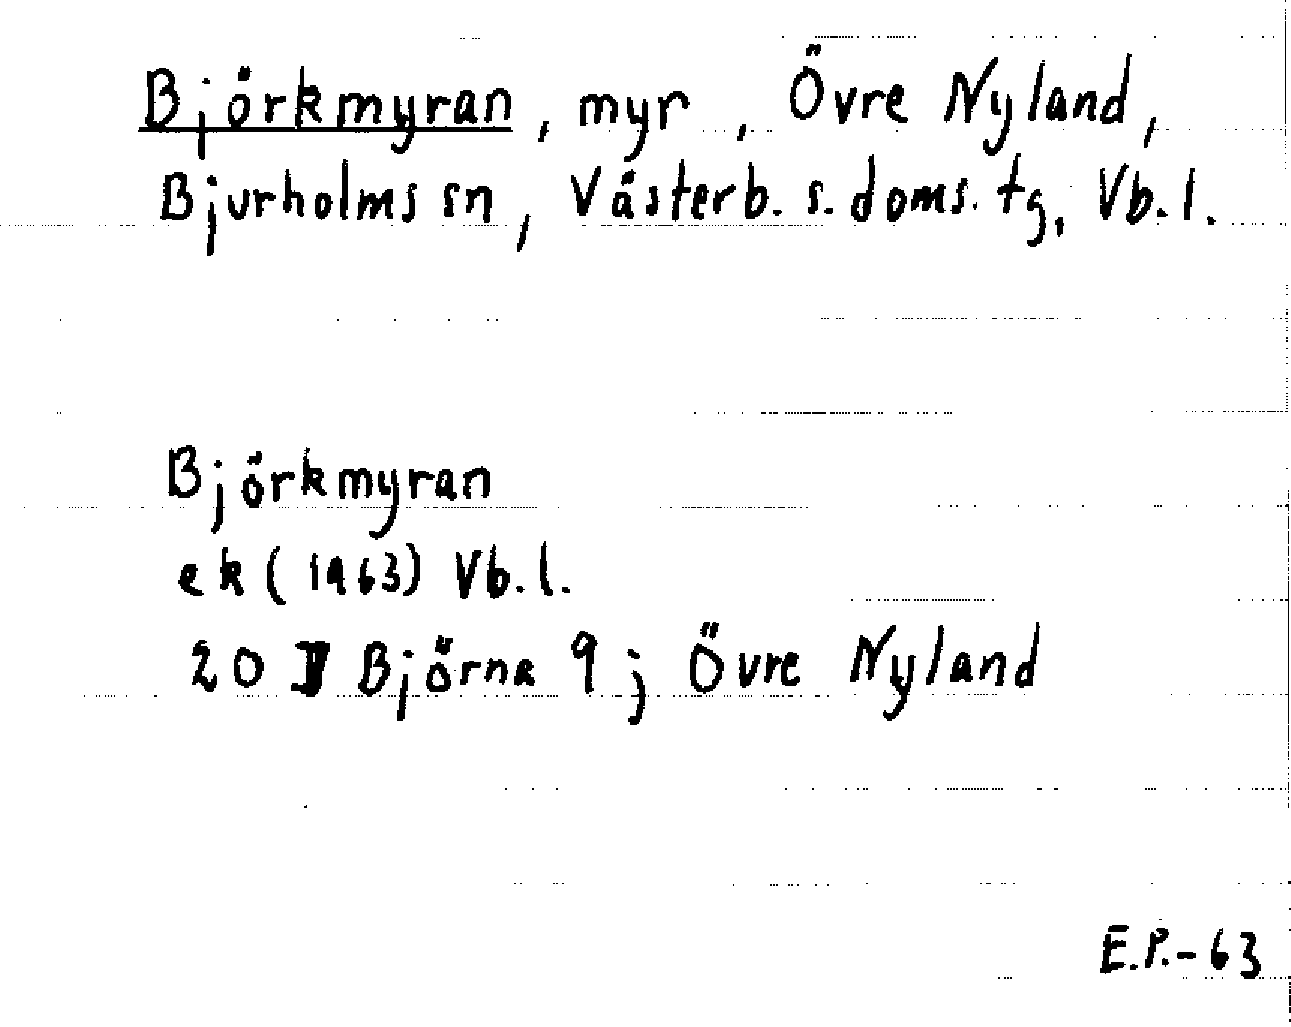 Björkmyran, myr, Övre Nyland,
Bjurholms sn, Västerb. s. doms. tg, Vb. l.
Björkmyran
ek (1963) Vb. l.
20 Björna 9 j Övre Nyland
E.P.-63